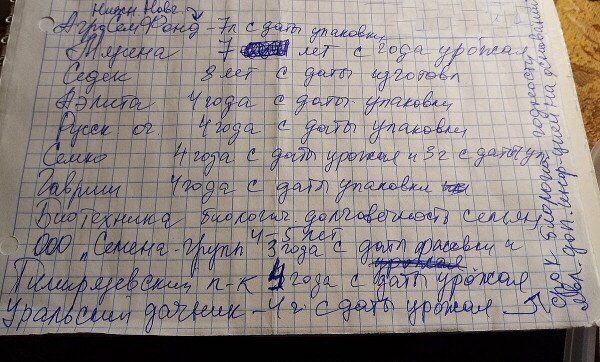 Нижн Новг.
Агросем Фонд - 7л с даты упаковки
Мязина 7 лет с года урожая
Седек 8 лет с даты изготовл
Аэлита 4 года с даты упаковки
Русск ог. 4 года с даты упаковки
Семко 4 года с даты урожая и 3 г с даты уп
Гавриш 4 года с даты упаковки
Биотехника биологич. долговечность семян
4-5 лет
ООО "Семена-групп 3 года с даты фасовки и
урожая
Тимирязевский п-к 4 года с даты урожая
Уральский дачник - 4 г с даты урожая
срок годности
явл. доп. инф-цией на основании